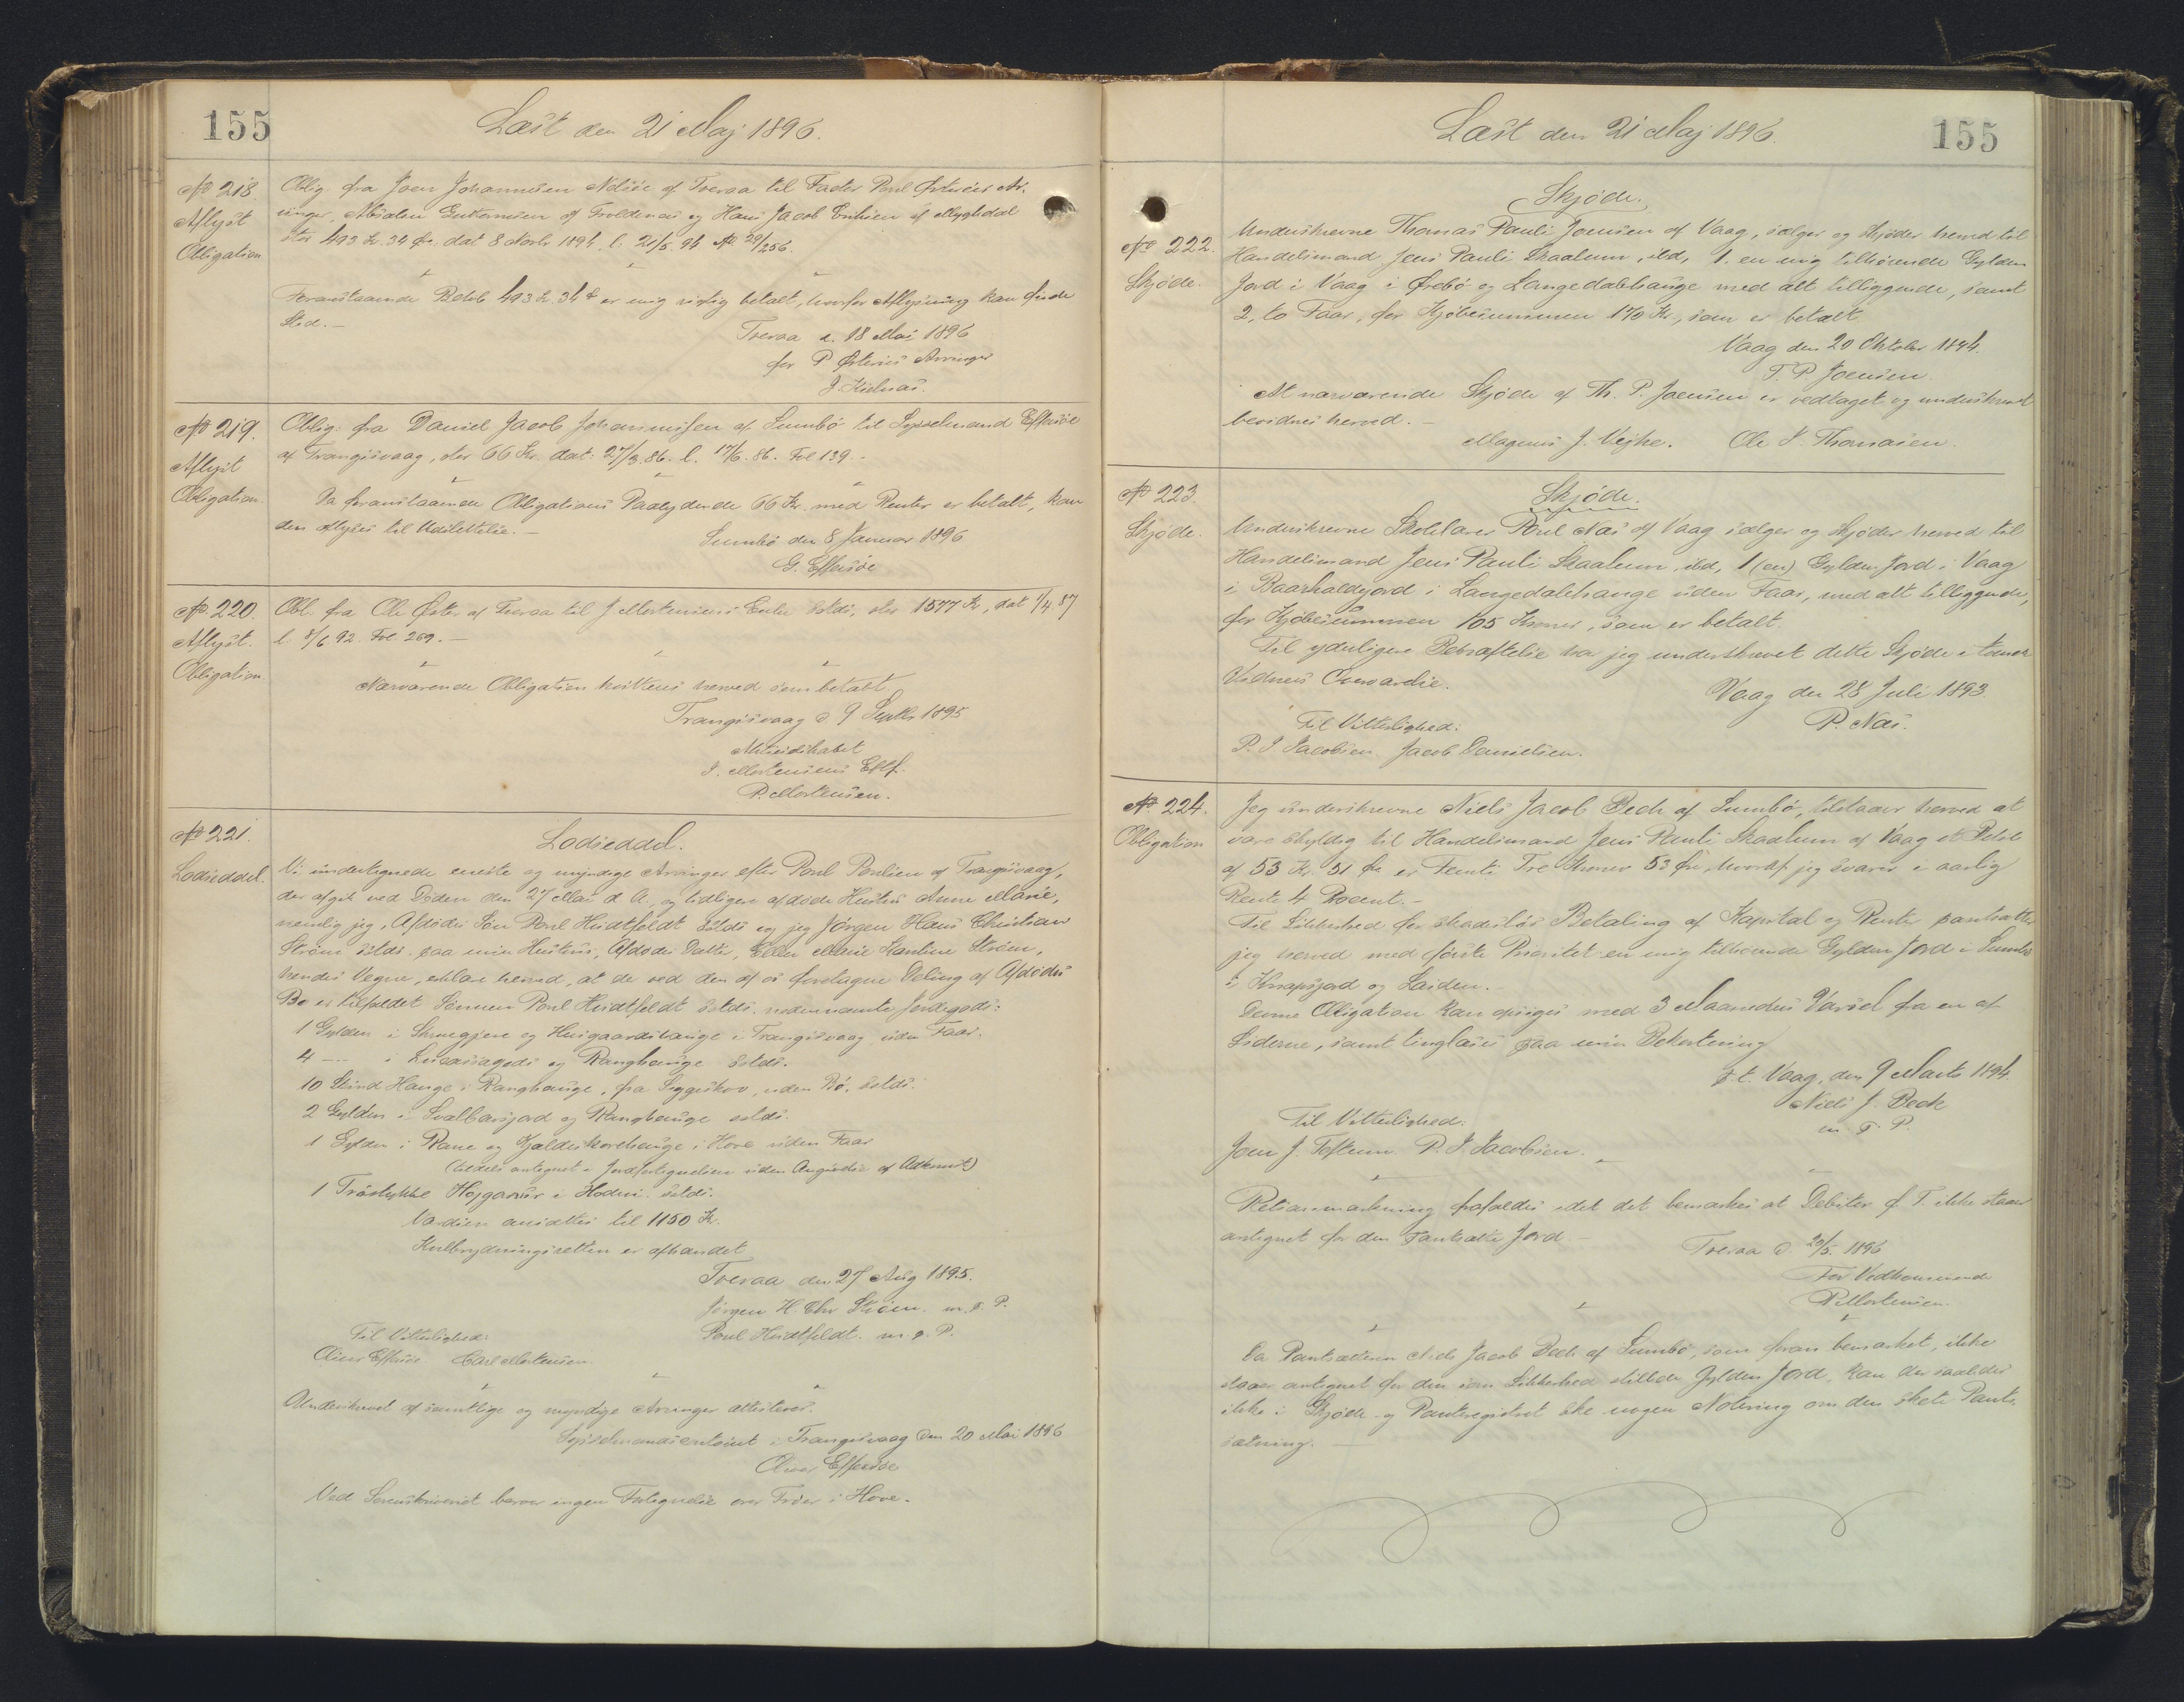 155
Læst den 21 Maj 1896.
No 218.
Aflyst
Obligation
Oblig. fra Joen Johannesen Nolsöe af Tveraa til Fader Poul Østeries Ar-
vinger, Absalon Guttormsen af Troldenæs og Hans Jacob Eriksen af Mygledal
stor 493 Kr. 34 Øre. dat 8 Novbr 1894. l. 21/5 94 No 29/256.
Foranstaaende Beløb 493 Kr. 34 Ø er mig rigtig betalt, hvorfor Aflysning kan finde
Sted.—
Tveraa d. 18 Mai 1896
for P. Østeries Arvinger
J. Kielnæs.
No 219.
Aflyst
Obligation.
Oblig: fra Daniel Jacob Johannissen af Sumbö til Sysselmand Effersöe
af Trangisvaag, stor 66 Kr. dat: 27/3.86. l. 17/6.86. Fol 139.
Da foranstaaende Obligations Paalydende 66 Kr. med Renter er betalt, kan
den aflyses til Udslettelse.—
Sumbö den 8 Januar 1896
G. Effersöe
No 220.
Aflyst.
Obligation
Obl. fra Ole Øster af Tveraa til J. Mortensens Enke sstds, stor 1577 Kr, dat 1/4 87
l. 8/6 92. Fol 269.—
Nærværende Obligation kvitteres herved som betalt
Trangisvaag d. 9 Septbr 1895
J. Mortensens Eftf.
P. Mortensen.
No 221.
Lodseddel.
Lodseddel.
Vi undertegnede eneste og myndige Arvinger efter Poul Poulsen af Trangisvaag,
der afgik ved Döden den 27 Mai d. A., og tidligere afdöde Hustru Anne Marie,
nemlig jeg, Afdödes Sön Poul Hvidtfeldt sstds og jeg Jörgen Hans Christian
Ström sstds. paa min Hustrus, Afdödes Datter, Ellen Marie Ström,
hendes Vegne, erklære herved, at de ved den af os foretagne Deling af Afdödes
Bo er tilfaldet Sönnen Poul Hvidtfeldt sstds. nedennævnte Jordegods:
1 Gylden i og Husgaardshauge i Trangisvaag, uden Faar.
4 —·— i og Ranghauge sstds.
10 Skind Hauge i Ranghauge, fra Siggeskov, uden Bö. sstds.
2 Gylden i og Ranghauge sstds.
1 Gylden i Rane og i Hove uden Faar
(tildels antegnet i Jordfortegnelsen uden Angivelse af Adkomst)
1 Tröstykke i Hodni. sstds.
Værdien ansættes til 1150 Kr.
Kulbrydningsretten er afhændet
Tveraa den 27 Aug 1895.
Jörgen H. Chr Ström. m. f. P.
Poul Hvidtfeldt. m. f. P.
Til Vitterlighed:
Oliver Effersöe Carl Mortensen.
Underskrevet af samtlige og myndige Arvinger attesteres.
Sysselmandscontoiret i Trangisvaag den 20 Mai 1896
Oliver Effersöe
Ved Sorenskriveriet beror ingen Fortegnelse over Tröer i Hove.
Læst den 21 Maj 1896.
155
No 222.
Skjöde.
Skjöde.
Underskrevne Thomas Pauli Joensen af Vaag, sælger og skjöder herved til
Handelsmand Jens Pauli Skaalum, ibd, 1. en mig tilhörende Gylden
Jord i Vaag i Ørebö og Langedalshauge med alt tilliggende, samt
2, to Faar, for Kjöbesummen 170 Kr., som er betalt
Vaag den 20 Oktober 1894.
T. P. Joensen.
At nærværende Skjöde af Th. P. Joensen er vedtaget og underskrevet
bevidnes herved.—
Magnus J. Vejhe. Ole J. Thomasen.
No 223.
Skjöde.
Skjöde.
Underskrevne Skolelærer Poul Næs af Vaag sælger og skjöder herved til
Handelsmand Jens Pauli Skaalum, ibd, 1 (en) Gylden Jord i Vaag
i Baarhaldsjord i Langedalshauge uden Faar, med alt tilliggende,
for Kjöbesummen 105 Kroner, som er betalt.
Til yderligere Bekræftelse har jeg underskrevet dette Skjöde i tvende
Vidners Overværelse.
Vaag den 28 Juli 1893.
P. Næs.
Til Vitterlighed:
P. J. Jacobsen. Jacob Danielsen.
No 224.
Obligation
Jeg underskrevne Niels Jacob Beck af Sumbö, tilstaaer herved at
være skyldig til Handelsmand Jens Pauli Skaalum af Vaag et Belöb
af 53 Kr. 51 Öre er Femti Tre Kroner 53 Öre, hvoraf jeg svarer i aarlig
Rente 4 Procent.—
Til Sikkerhed for skadeslös Betaling af Kapital og Rente pantsætter
jeg herved med förste Prioritet en mig tilhörende Gylden Jord i Sumbö
i Knapsjord og Laiden.—
Denne Obligation kan opsiges med 3 Maaneders Varsel fra en af
Siderne, samt tinglæses paa min Bekostning
p.t. Vaag, den 9 Marts 1894.
Niels J. Beck
m. f. P.
Til Vitterlighed:
Joen J. Toftum. P. J. Jacobsen.
Retsanmærkning frafaldes idet det bemærkes at Debitor f. T. ikke staar
antegnet for den Pantsatte Jord.—
Tveraa d. 20/5. 1896
For Vedkommende
P. Mortensen.
Da Pantsætteren Niels Jacob Beck af Sumbö, som foran bemærket, ikke
staaer antegnet for den som Sikkerhed stillede Gylden Jord, kan der saaledes
ikke i Skjöde- og Panteregistret ske nogen Notering om den skete Pant-
sætning.—